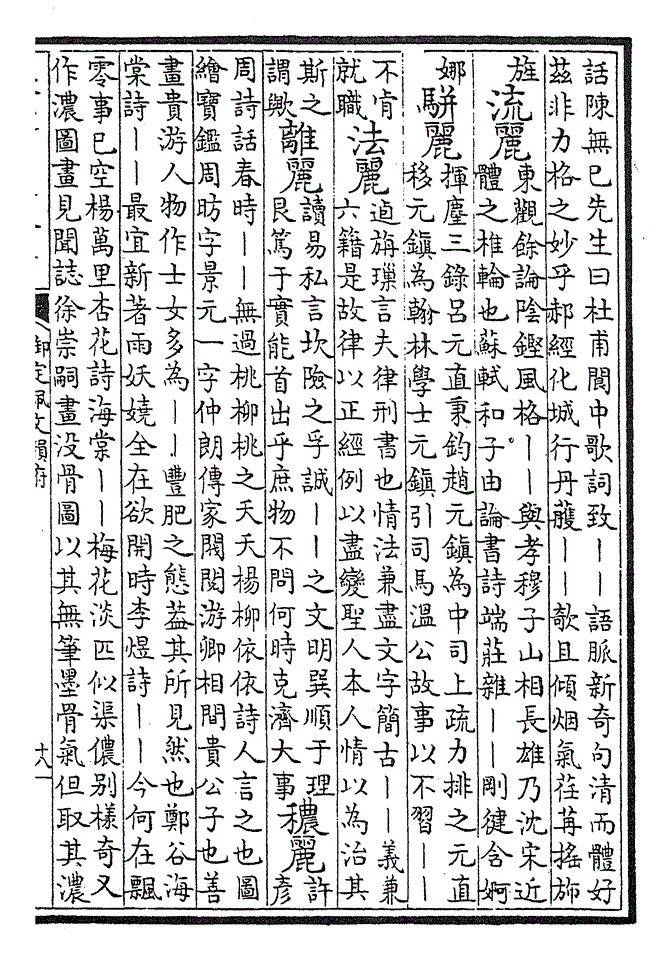 話陳無已先生曰杜甫閬中歌詞致——語脈新奇句清而體好
茲非力格之妙乎郝經化城行丹雘——欹且傾烟氣荏苒搖斾
旌
流麗
東觀餘論陰鏗風格——與孝穆子山相長雄乃沈宋近
體之椎輪也蘇軾和子由論書詩端莊雜——剛健含婀
娜
駢麗
揮麈三錄呂元直秉鈞趙元鎮為中司上疏力排之元直
移元鎮為翰林學士元鎮引司馬溫公故事以不習——
不肯
就職
法麗
逌旃璅言夫律刑書也情法兼盡文字簡古——義兼
六籍是故律以正經例以盡變聖人本人情以為治其
斯之
謂歟
離麗
讀易私言坎險之孚誠——之文明巽順于理
艮篤于實能首出乎庶物不問何時克濟大事
穠麗
許
彥
周詩話春時——無過桃柳桃之夭夭楊柳依依詩人言之也圖
繪寶鑑周昉字景元一字仲朗傳家閥閱游卿相間貴公子也善
畫貴游人物作士女多為——豐肥之態葢其所見然也鄭谷海
棠詩——最宜新著雨妖嬈全在欲開時李煜詩——今何在飄
零事已空楊萬里杏花詩海棠——梅花淡匹似渠儂别樣奇又
作濃圖畫見聞誌徐崇嗣畫没骨圖以其無筆墨骨氣但取其濃
御定佩文韻府